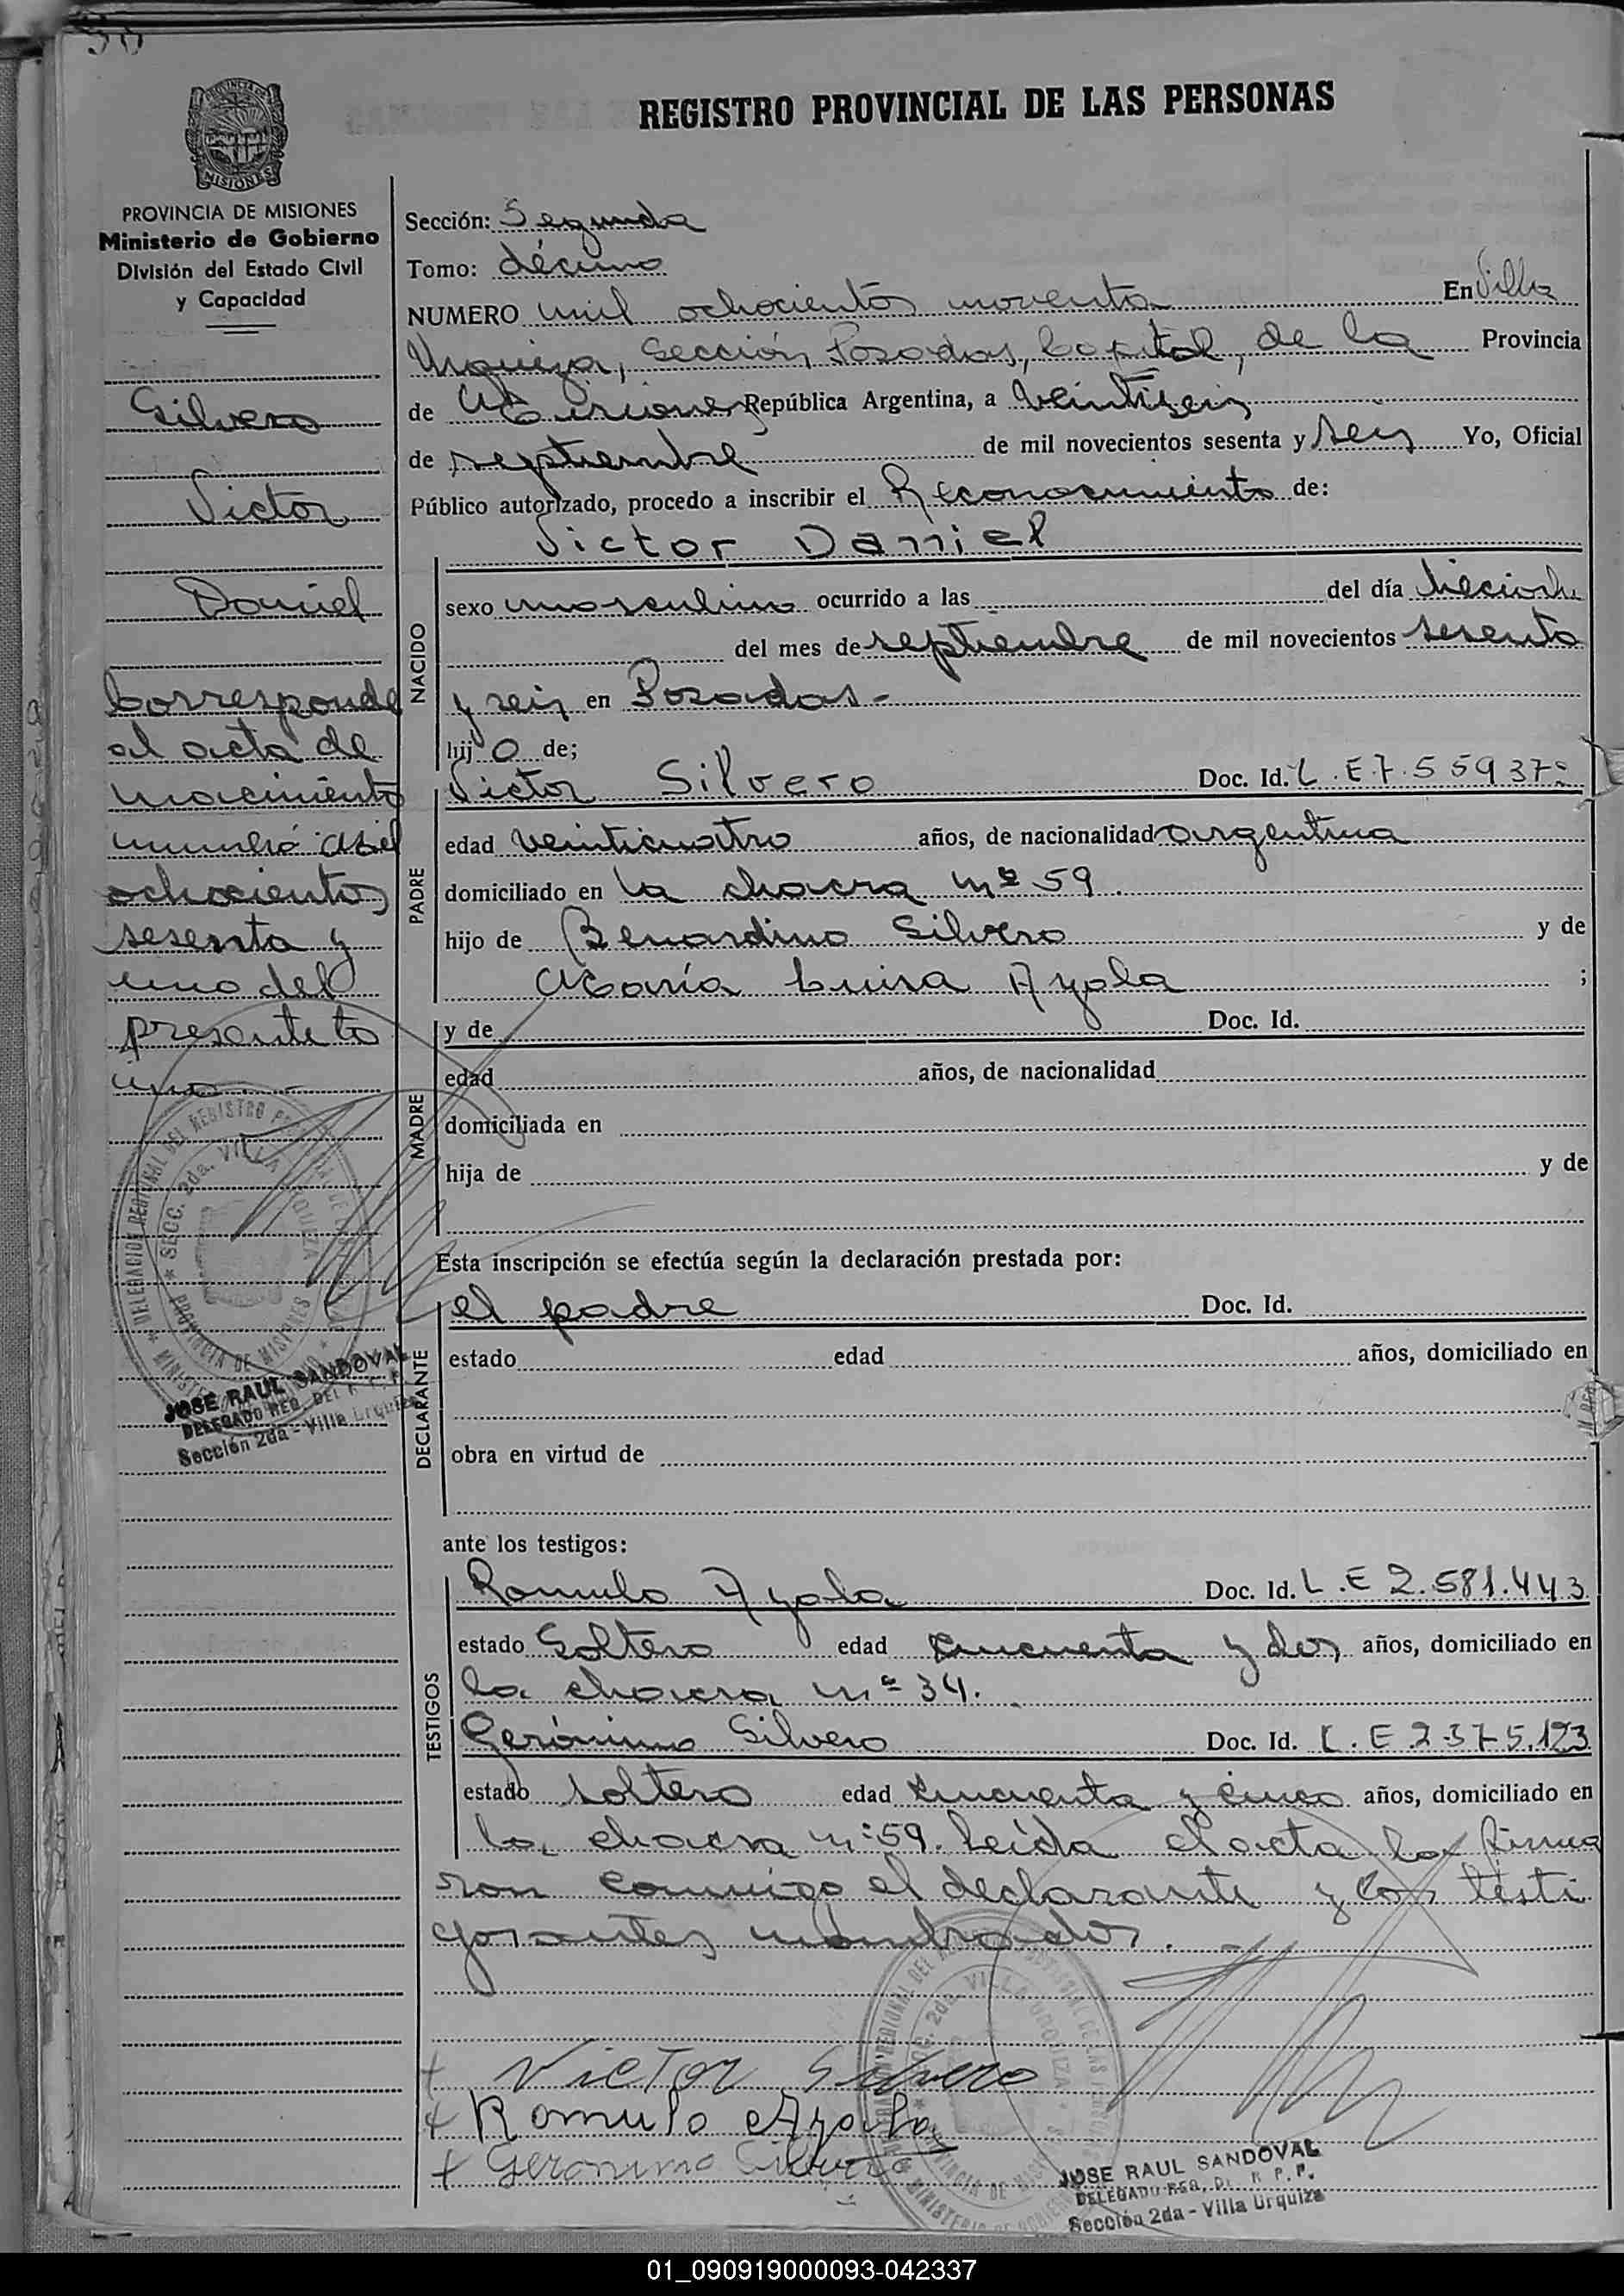 REGISTRO PROVINCIAL DE LAS PERSONAS
MISIONES
PROVINCIA DE MISIONES
Ministerio de Gobierno
División del Estado Civil
y Capacidad
Silvero
Victor
Daniel
Corresponde
al acta de
nacimiento
número Mil
ochocientos
sesenta y
uno del
presente to
mo.-
JOSE RAUL SANDOVAL
DELEGADO REG. DEL R. P. P.
Sección 2da - Villa Urquiza
Sección: Segunda
Tomo: décimo
NUMERO mil ochocientos noventa En Villa
Urquiza, Sección Posadas, Capital, de la Provincia
de Misiones República Argentina, a veintiseis
de septiembre de mil novecientos sesenta y seis Yo, Oficial
Público autorizado, procedo a inscribir el Reconocimiento de:
Victor Daniel
NACIDO
sexo masculino ocurrido a las del día dieciocho
del mes de septiembre de mil novecientos sesenta
y seis en Posadas.-
hijo de;
PADRE
Victor Silvero Doc. Id. L.E.7.559.37
edad veinticuatro años, de nacionalidad argentina
domiciliado en la chacra nº 59.
hijo de Benardino Silvero y de
María Luisa Ayala ;
MADRE
y de Doc. Id.
edad años, de nacionalidad
domiciliada en
hija de y de
Esta inscripción se efectúa según la declaración prestada por:
DECLARANTE
el padre Doc. Id.
estado edad años, domiciliado en
obra en virtud de
ante los testigos:
TESTIGOS
Romulo Ayala Doc. Id. L.E 2.581.443
estado Soltero edad cincuenta y dos años, domiciliado en
la chacra nº 34.
Gerónimo Silvero Doc. Id. L.E 2.375.123
estado soltero edad cincuenta y cinco años, domiciliado en
la chacra nº 59. Leída el acta la firma
ron conmigo el declarante y los testi
gos antes nombrados.-
Victor Silvero
Romulo Ayala
Geronimo Silvero
JOSE RAUL SANDOVAL
DELEGADO REG. DEL R. P. P.
Sección 2da - Villa Urquiza
01_090919000093-042337